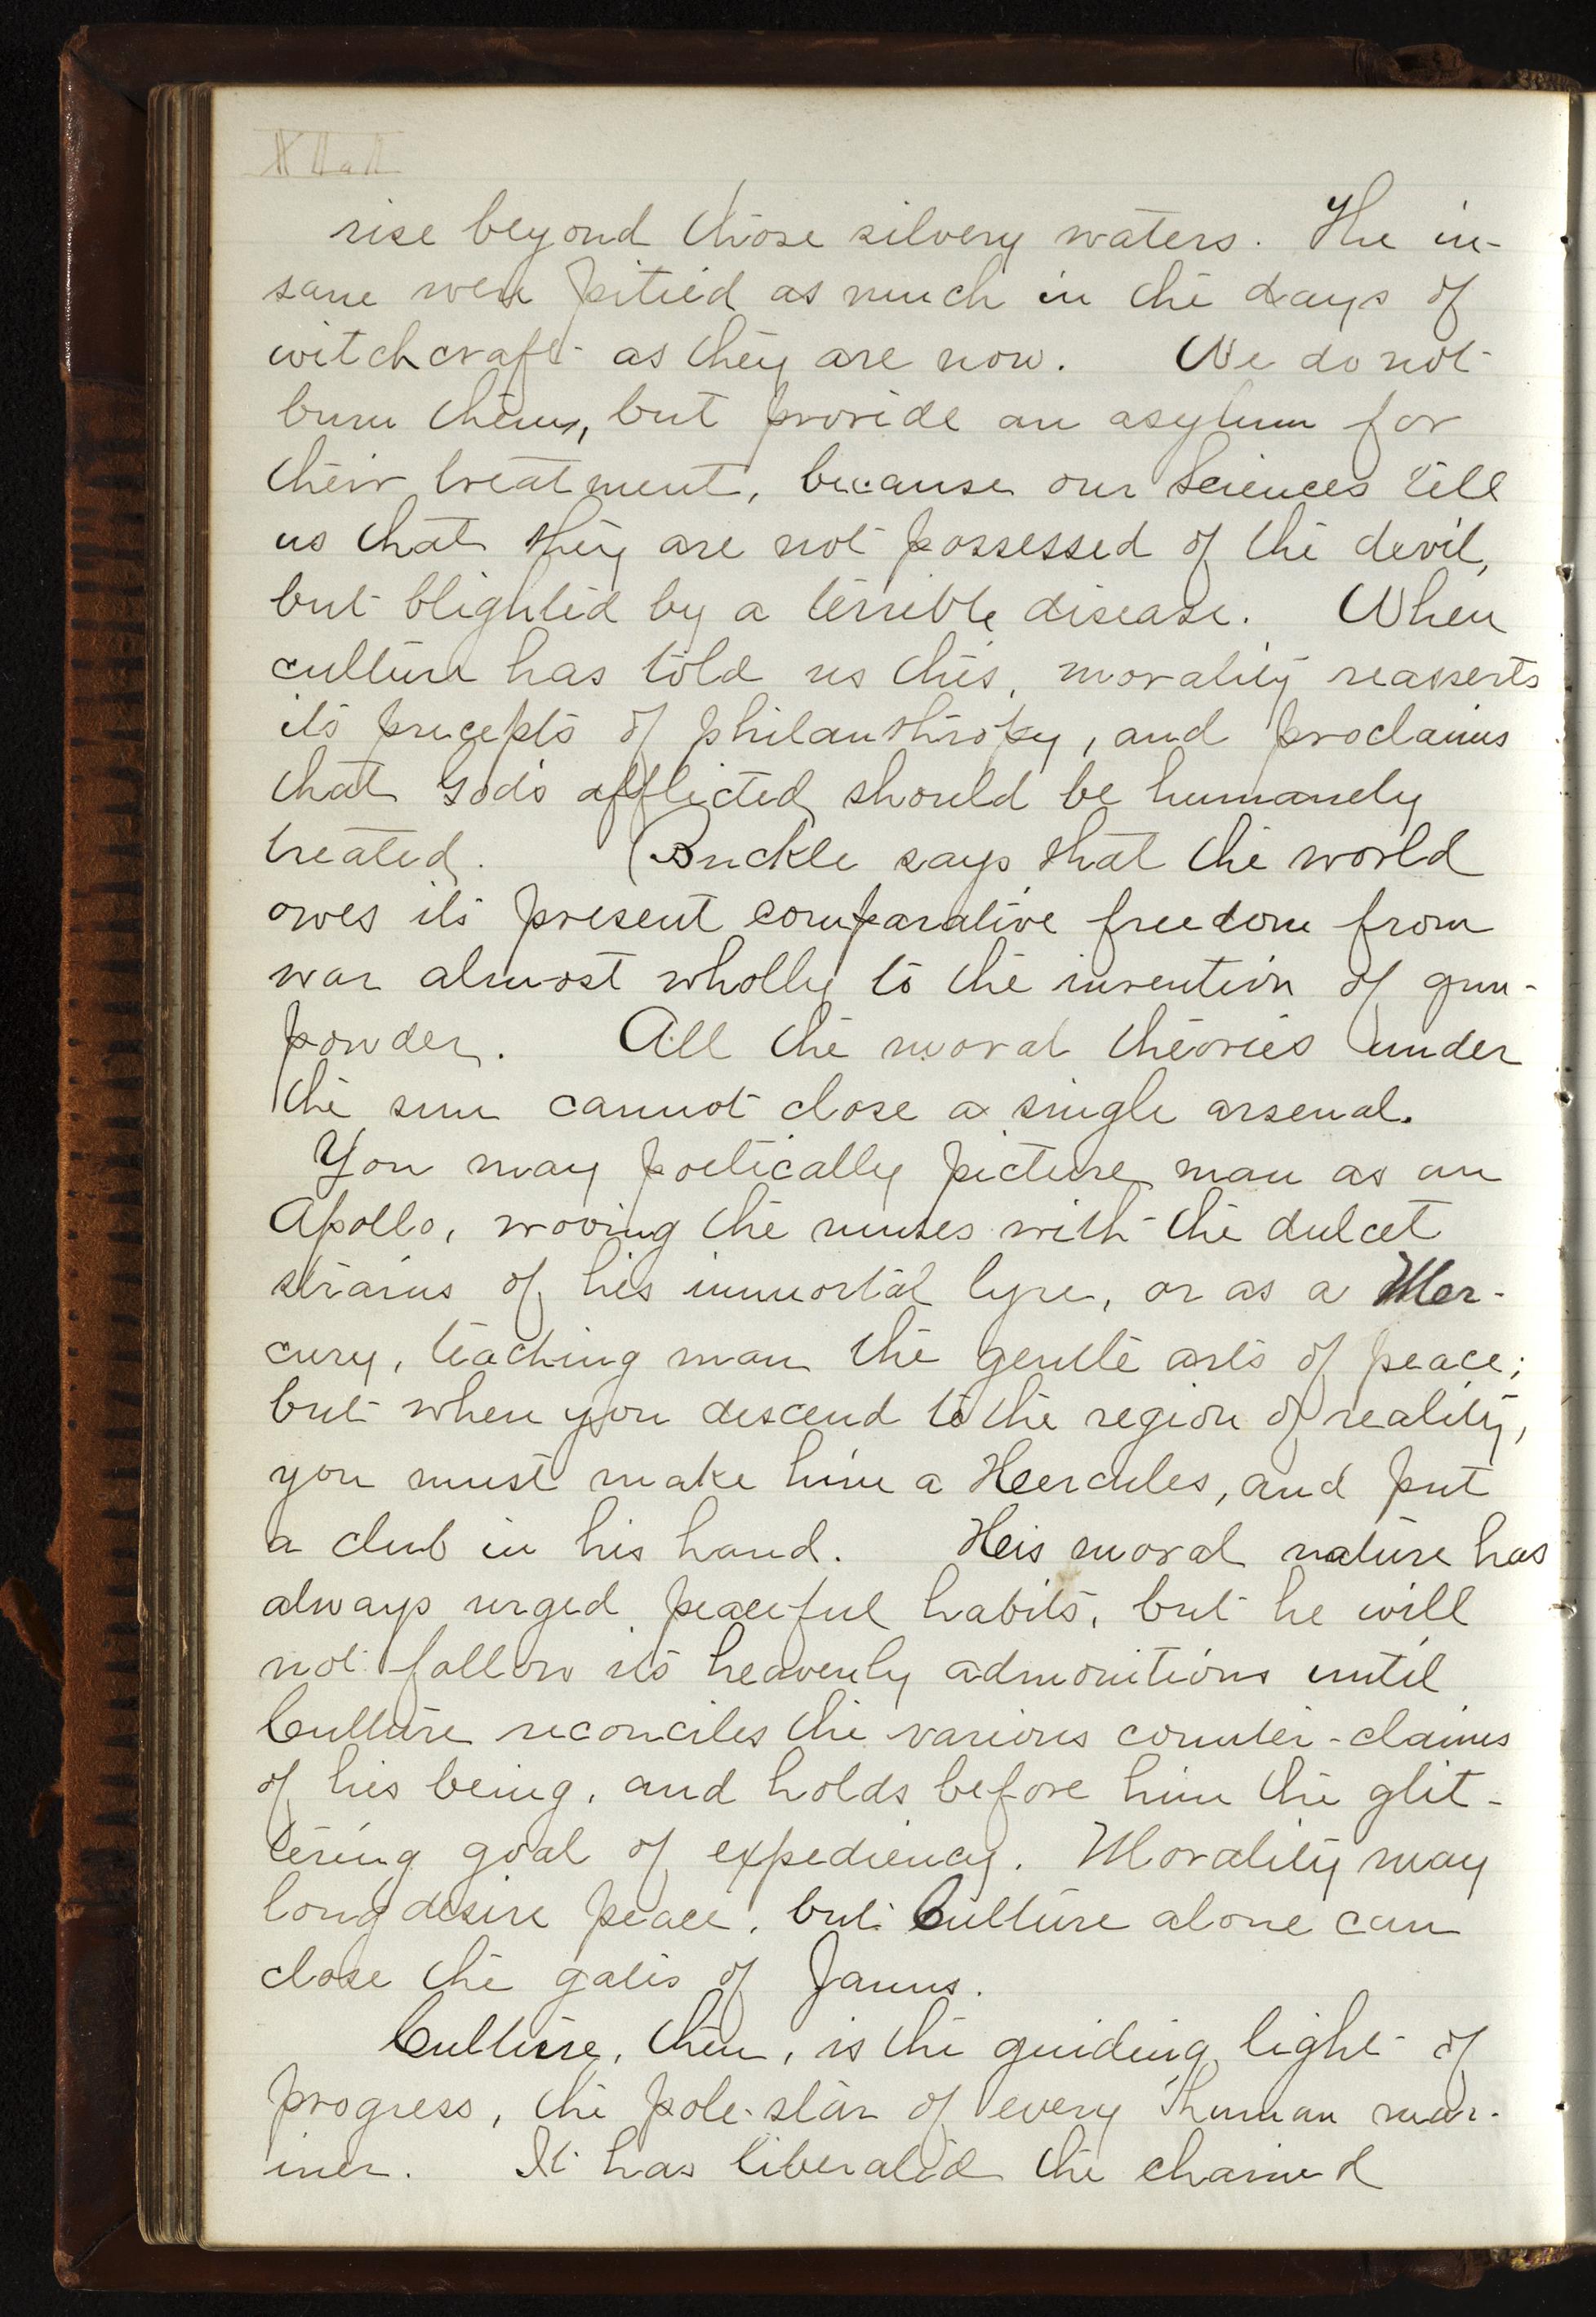 rise beyond those silvery waters. The in-
sane were pitied as much in the days of
witchcraft as they are now. We do not
burn them, but provide an asylum for
their treatment, because our Sciences tell
us that they are not possessed of the devil,
but blighted by a terrible disease. When
culture has told us this, morality reasserts
its precepts of philanthropy, and proclaims
that God's afflicted should be humanely
treated. Buckle says that the world
owes its present comparative freedom from
war almost wholly to the invention of gun-
powder. All the moral theories under
the sun cannot close a single arsenal.
You may poetically picture man as an
Apollo, wooing the muses with the dulcet
strains of his immortal lyre, or as a Mer-
cury, teaching man the gentle arts of peace;
but when you descend to the region of reality,
you must make him a Hercules, and put
a club in his hand. His moral nature has
always urged peaceful habits, but he will
not follow its heavenly admonitions until
Culture reconciles the various counter-claims
of his being, and holds before him the glit-
tering goal of expediency. Morality may
long desire peace, but Culture alone can
close the gates of Janus.
Culture, then, is the guiding light of
progress, the pole-star of every human mar-
iner. It has liberated the chained